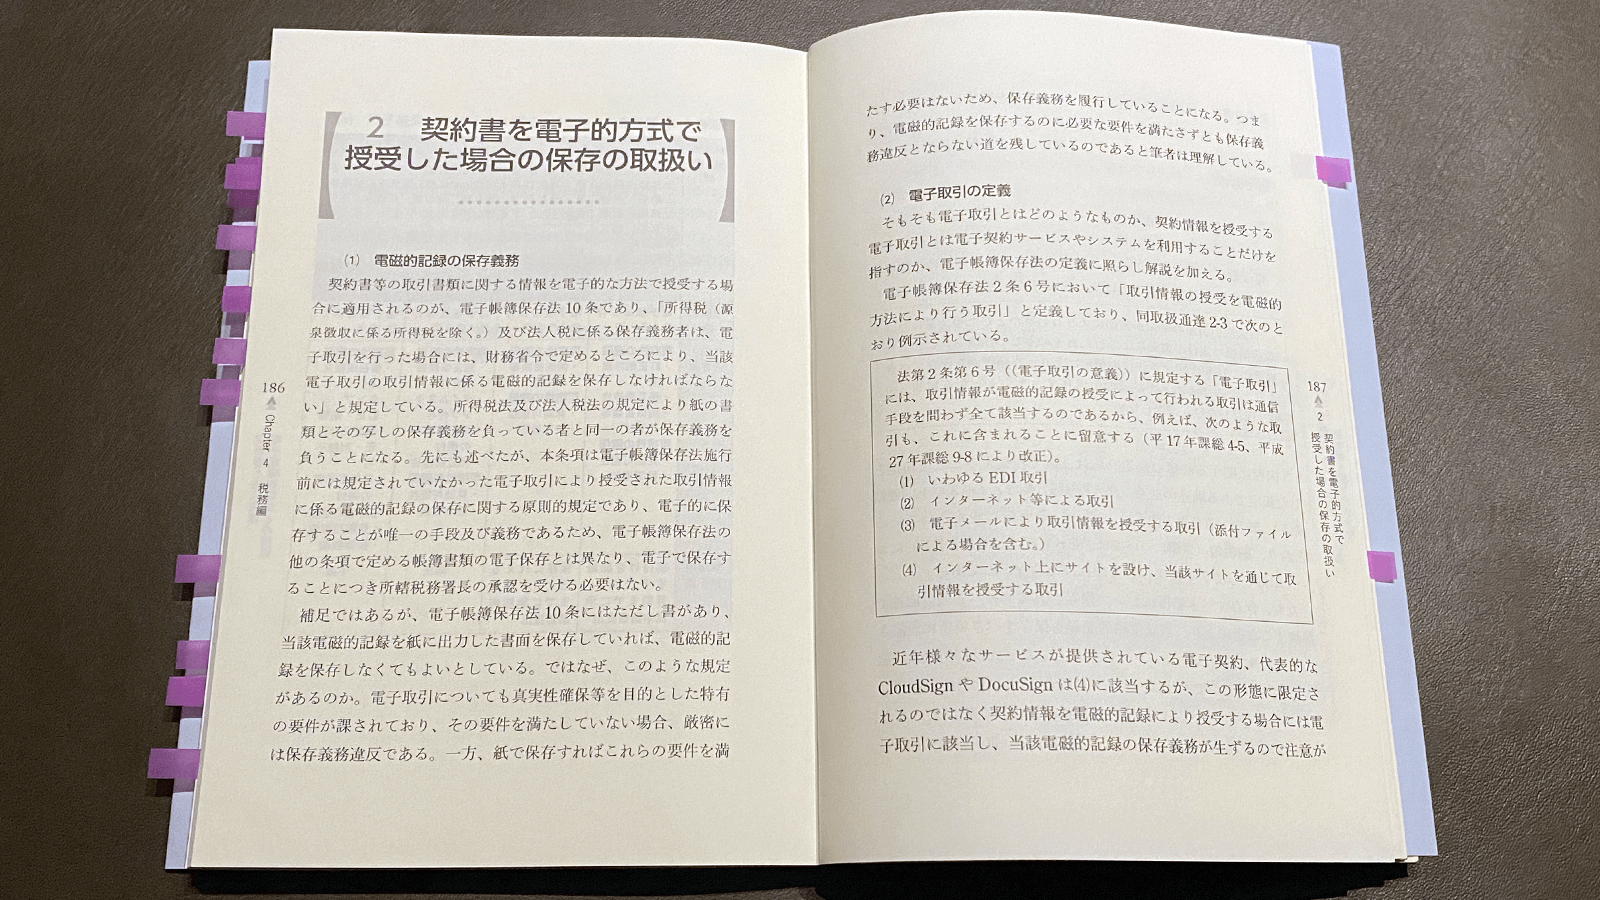 2 契約書を電子的方式で
授受した場合の保存の取扱い
⑴ 電磁的記録の保存義務
契約書等の取引書類に関する情報を電子的な方法で授受する場
合に適用されるのが、電子帳簿保存法 10 条であり、「所得税（源
泉徴収に係る所得税を除く。）及び法人税に係る保存義務者は、電
子取引を行った場合には、財務省令で定めるところにより、当該
電子取引の取引情報に係る電磁的記録を保存しなければならな
い」と規定している。所得税法及び法人税法の規定により紙の書
類とその写しの保存義務を負っている者と同一の者が保存義務を
負うことになる。先にも述べたが、本条項は電子帳簿保存法施行
前には規定されていなかった電子取引により授受された取引情報
に係る電磁的記録の保存に関する原則的規定であり、電子的に保
存することが唯一の手段及び義務であるため、電子帳簿保存法の
他の条項で定める帳簿書類の電子保存とは異なり、電子で保存す
ることにつき所轄税務署長の承認を受ける必要はない。
補足ではあるが、電子帳簿保存法 10 条にはただし書があり、
当該電磁的記録を紙に出力した書面を保存していれば、電磁的記
録を保存しなくてもよいとしている。ではなぜ、このような規定
があるのか。電子取引についても真実性確保等を目的とした特有
の要件が課されており、その要件を満たしていない場合、厳密に
は保存義務違反である。一方、紙で保存すればこれらの要件を満
186
Chapter 4 税務編
たす必要はないため、保存義務を履行していることになる。つま
り、電磁的記録を保存するのに必要な要件を満たさずとも保存義
務違反とならない道を残しているのであると筆者は理解している。
⑵ 電子取引の定義
そもそも電子取引とはどのようなものか、契約情報を授受する
電子取引とは電子契約サービスやシステムを利用することだけを
指すのか、電子帳簿保存法の定義に照らし解説を加える。
電子帳簿保存法 2 条 6 号において「取引情報の授受を電磁的
方法により行う取引」と定義しており、同取扱通達 2-3 で次のと
おり例示されている。
法第 2 条第 6 号（（電子取引の意義））に規定する「電子取引」
には、取引情報が電磁的記録の授受によって行われる取引は通信
手段を問わず全て該当するのであるから、例えば、次のような取
引も、これに含まれることに留意する（平 17 年課総 4-5、平成
27 年課総 9-8 により改正）。
⑴ いわゆる EDI 取引
⑵ インターネット等による取引
⑶ 電子メールにより取引情報を授受する取引（添付ファイル
による場合を含む。）
⑷ インターネット上にサイトを設け、当該サイトを通じて取
引情報を授受する取引
近年様々なサービスが提供されている電子契約、代表的な
CloudSign や DocuSign は⑷に該当するが、この形態に限定さ
れるのではなく契約情報を電磁的記録により授受する場合には電
子取引に該当し、当該電磁的記録の保存義務が生ずるので注意が
187
2 契約書を電子的方式で
授受した場合の保存の取扱い